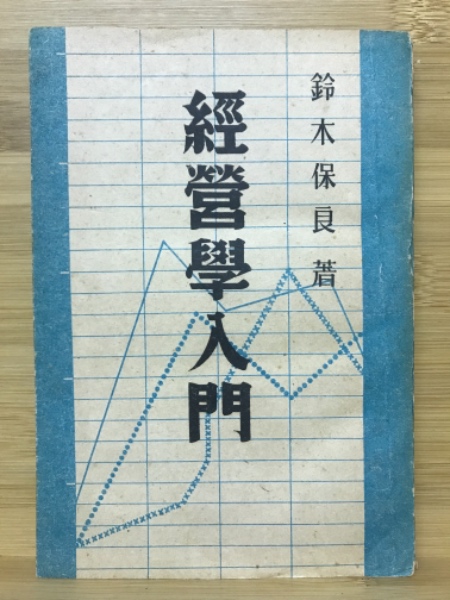 鈴木保良著
經營學入門